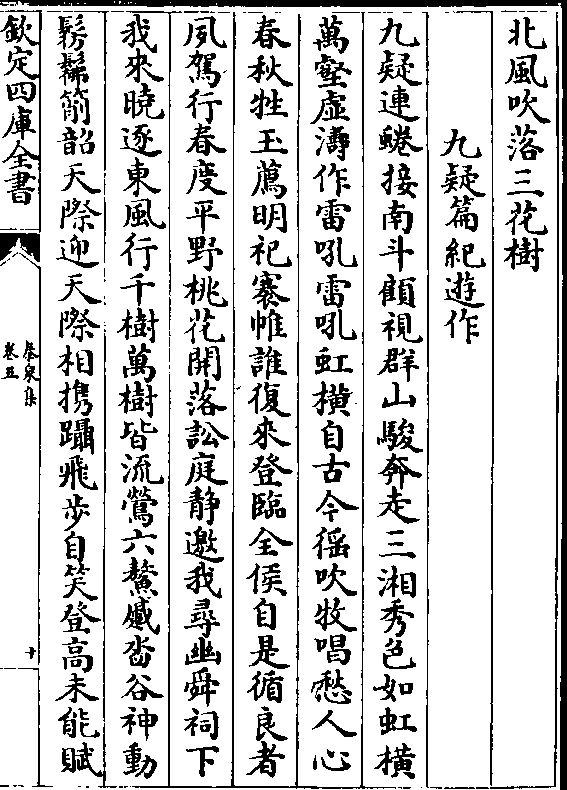 北風吹落三花樹
九疑篇紀遊作
九疑連蜷接南斗顧視群山駿奔走三湘秀色如虹橫
萬壑虛濤作雷吼雷吼虹橫自古今徭吹牧唱愁人心
春秋牲玉薦明祀褰帷誰復來登臨全侯自是循良者
夙駕行春度平野桃花開落訟庭静邀我尋幽舜祠下
我來曉逐東風行千樹萬樹皆流鶯六鰲巇㟧谷神動
髣髴簫韶天際迎天際相携躡飛步自笑登高未能賦
欽定四庫全書
卷五
十